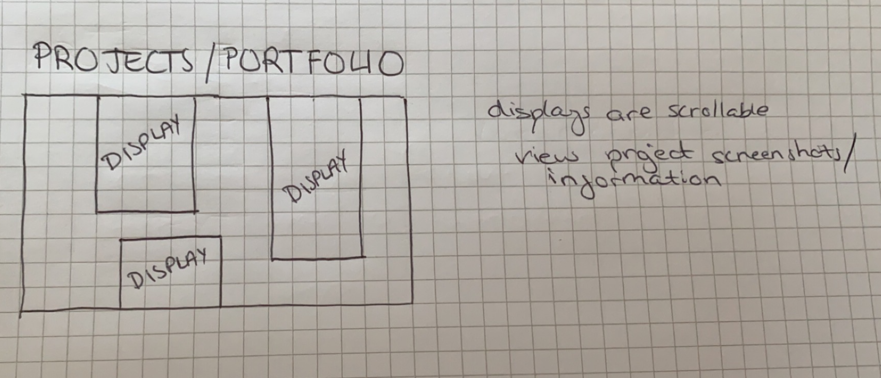 PROJECTS/PORTFOLIO
DISPLAY
DISPLAY
DISPLAY
displays are scrollable
view project screenshots/
information